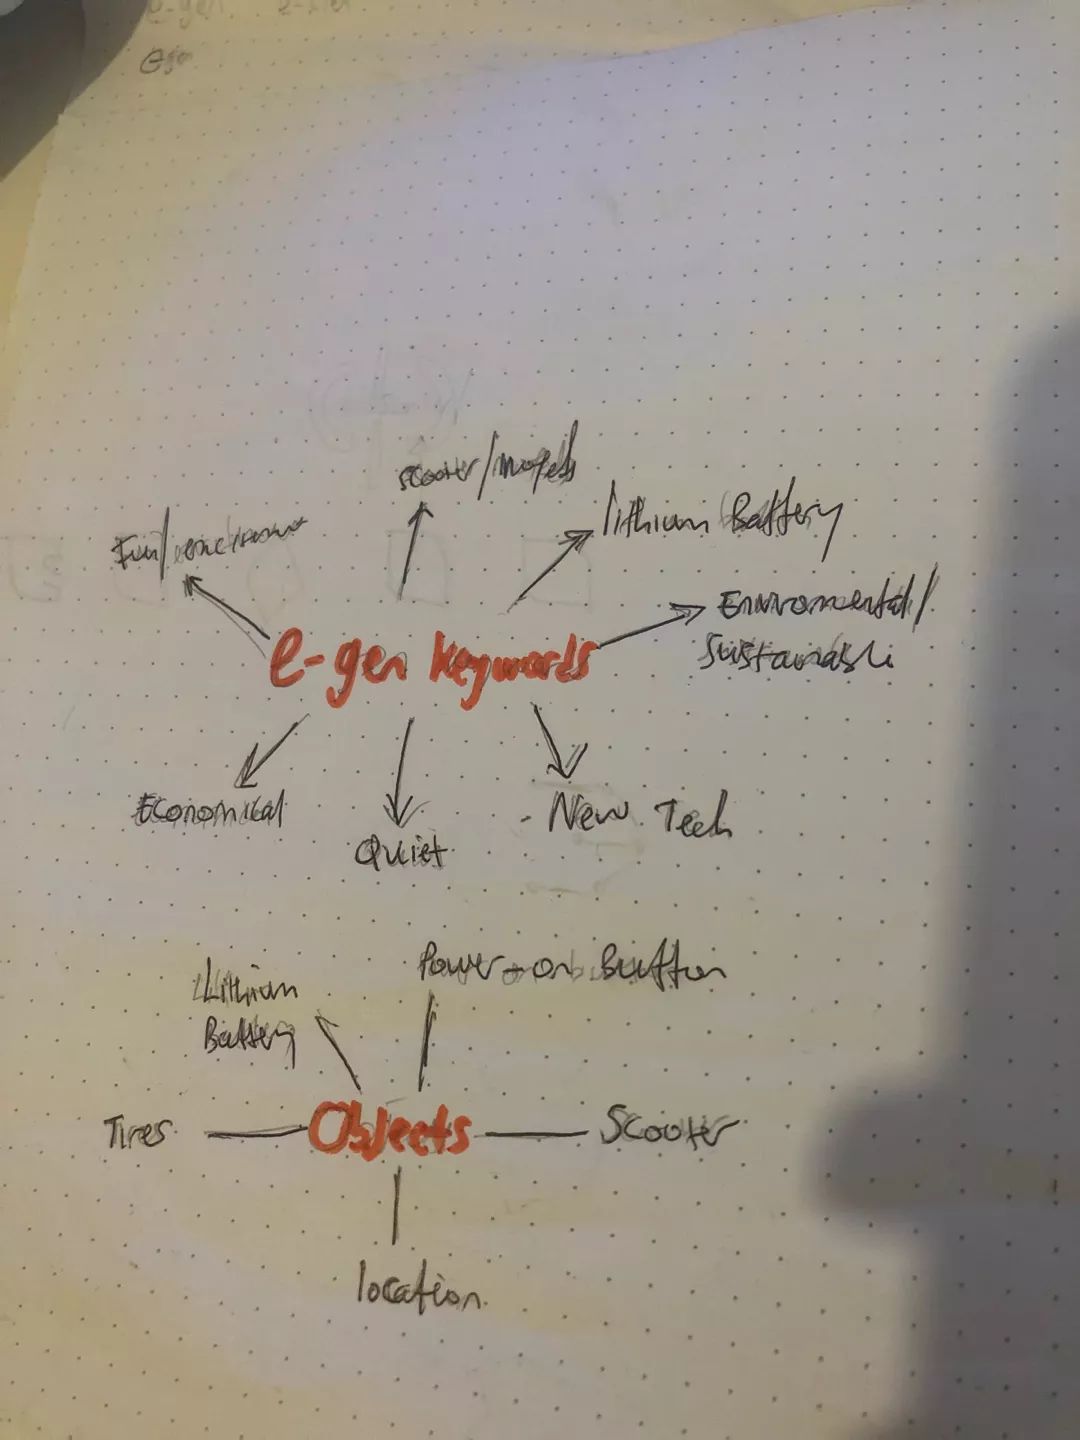 e-gen
scooter/mopeds
lithium Battery
Fun/
Enviromental/
Sustainabli
e-gen keywords
Economical
New Tech
Quiet
Power-on Button
Lithium
Battery
Tires
Objects
Scooter
location